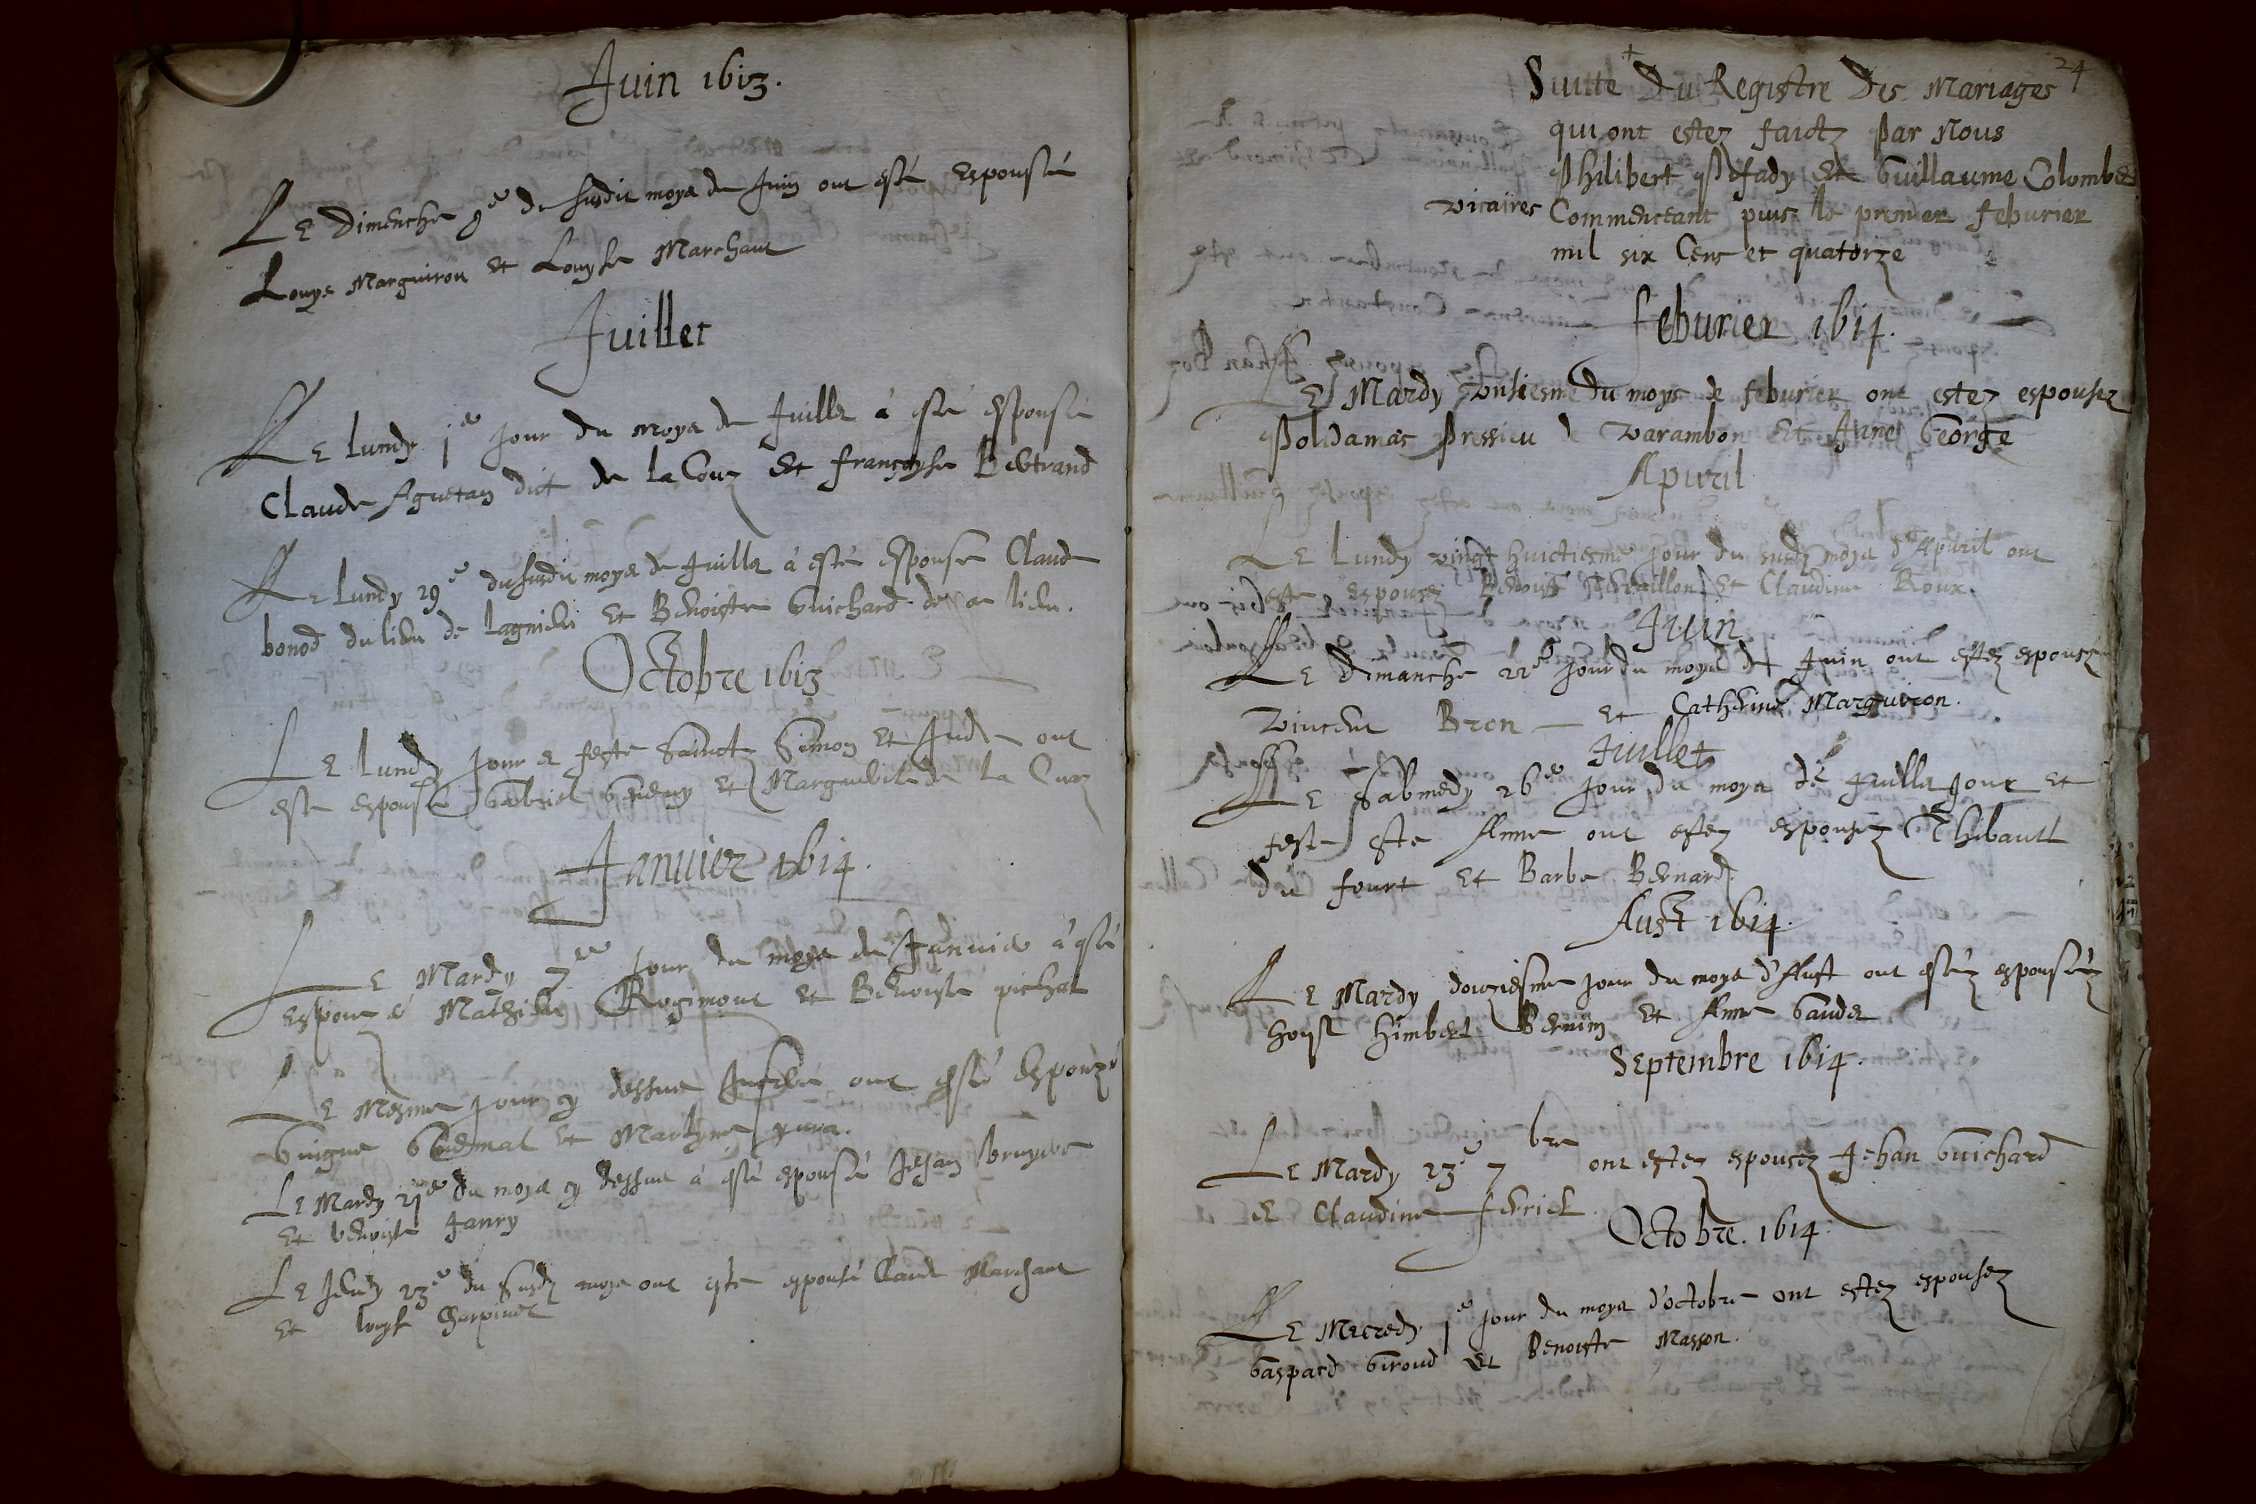 Juin 1613.
Le Dimenche 9e du susdit moys de Juin ont esté espousés
Louys Marguiron et Louyse Marchant
Juillet
Le lundy 1e jour du moys de Juillet à esté espousé
Claude Aguetan dict de la Couz et françoyse Bertrand
Le lundy 29e du susdit moys de Juillet à esté espousé Claude
bonod du lieu de Lagnieu et Benoiste Guichard de ce lieu.
Octobre 1613
Le lundy jour et feste Sainct Simon et Jude ont
esté espousé Gabriel et Marguerite de la Couz
Janvier 1614.
Le Mardy 7e jour du moys de Januier à esté
espousé Rogimont et Benoyste pichat
Le Mesme jour cy dessus ont esté Espouzé
Guigue et Martyne
Le Mardy 21e du moys cy dessus à esté espousé Jehan bruyere
et benoiste Janry
Le Jeudy 23e du susdt moys ont esté espousé Claude Marchant
et louyse Charpinet
24
Suitte Du Registre Des Mariages
qui ont estez faictz par Nous
Philibert Et Guillaume Colombet
vicaires Commenceant puis le premier feburier
mil six Cens et quatorze
feburier 1614.
Le Mardy onsiesme du moys de feburier ont estez espousez
Polidamas Pressieu de Varambon Et Anne George
Apuril
Le Lundy vingt huictiesme jour du susdt moys d'Apuril ont
este espousez Benoist et Claudine Roux.
Juin
Le Dimanche 22e jour du moys de Juin ont estez espousez
Vincent Bron et Catherine Marguiron.
Juillet
Le Sabmedy 26e Jour du moys de Juillet Jour et
feste Ste Anne ont estez espousez Thibault
du fourt et Barbe Bernard.
Aust 1614.
Le Mardy douziesme jour du moys d'Aust ont estéz espouséz
honst himbert Bernin et Anne Gaudet
Septembre 1614.
Le Mardy 23e 7bre ont estez espousez Jehan Guichard
et Claudine ferriet
Octobre. 1614.
Le Mecredy 1e jour du moys d'octobre ont estez espousez
Gaspard Giroud et Benoiste Masson.